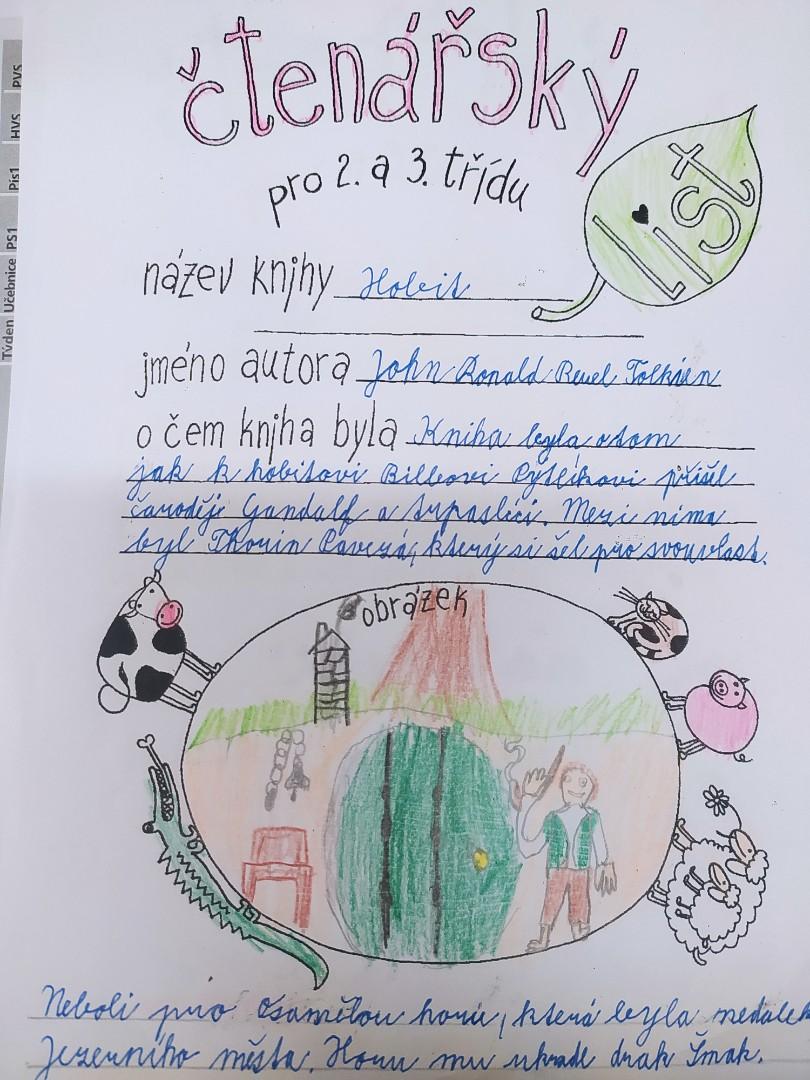 čtenářský
List
pro 2. a 3. třídu
název knihy Hobit
jméno autora John Ronald Reuel Tolkien
o čem kniha byla Kniha byla otom
jak k hobitovi Bilbovi Pytlíkovi přišel
čaroděje Gandalf a trpaslíci. Mezi nima
byl Thorin Pavéza, který si šel pro svouvlast.
obrázek
Neboli pro Osamělou horu, která byla nedalek
Jezerního města. Horu mu ukradl drak Šmak.
PVS
HVS
Pís1
PS1
Učebnice
Týden